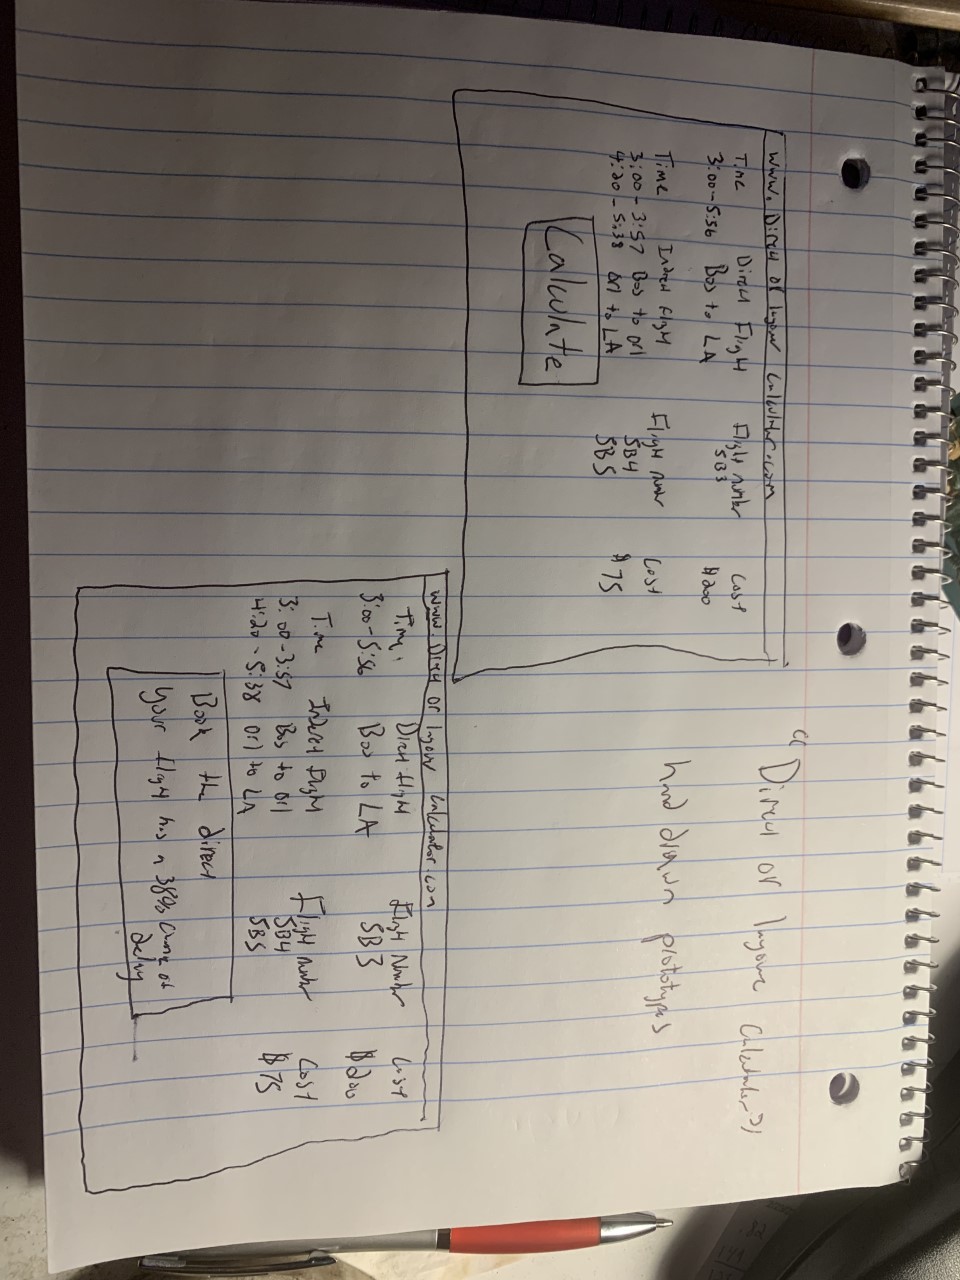 "Direct or layover calculator"
hand drawn prototypes
www.Direct or layover calculator.com
Time Direct Flight Flight number Cost
3:00-5:56 Bos to LA 5B3 $200
Time Indirect Flight Flight number Cost
3:00 - 3:57 Bos to Orl 5B4 $75
4:20 - 5:38 Orl to LA 5B5
Calculate
www.Direct or layover calculator.com
Time Direct flight Flight Number Cost
3:00-5:56 Bos to LA 5B3 $200
Time Indirect flight Flight number Cost
3:00-3:57 Bos to Orl 5B4 $75
4:20 - 5:38 Orl to LA 5B5
Book the direct
your flight has a 38% chance of
delay